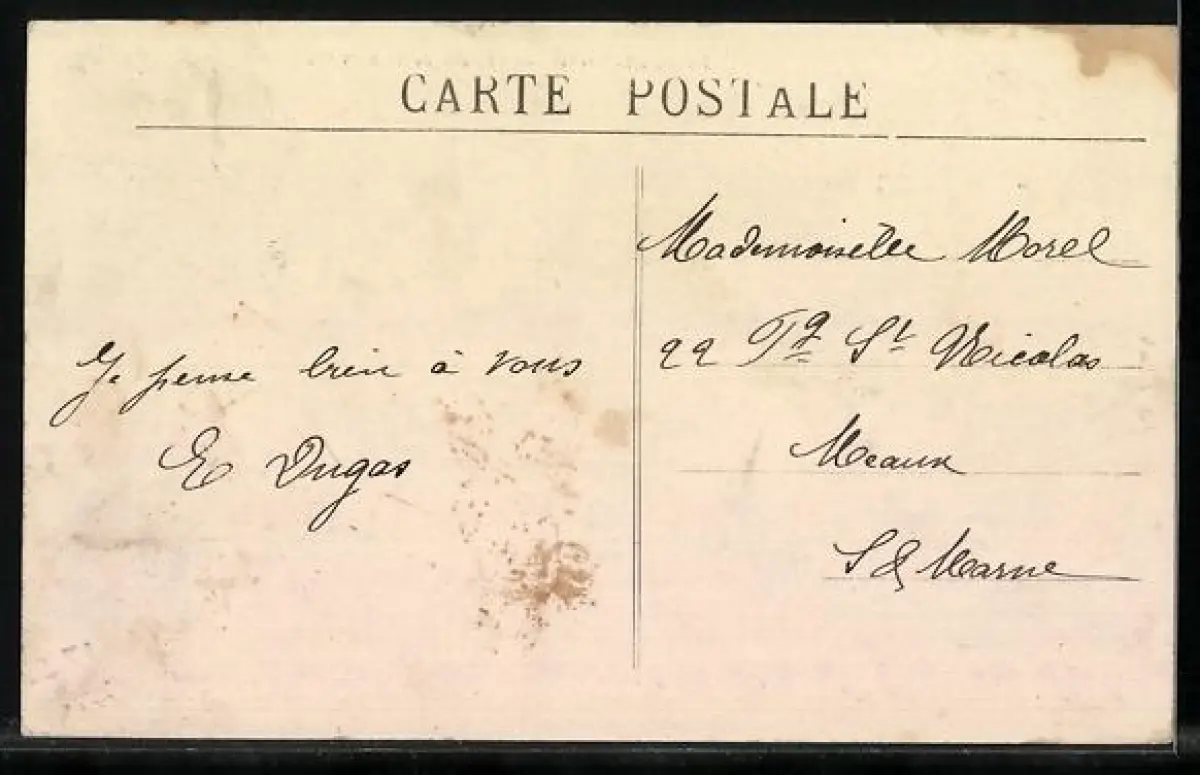 CARTE POSTALE
Je pense bien à vous
E Dugas
Mademoiselle Morel
22 Fg St Nicolas
Meaux
S & Marne